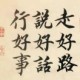 走好路
說好話
行好事